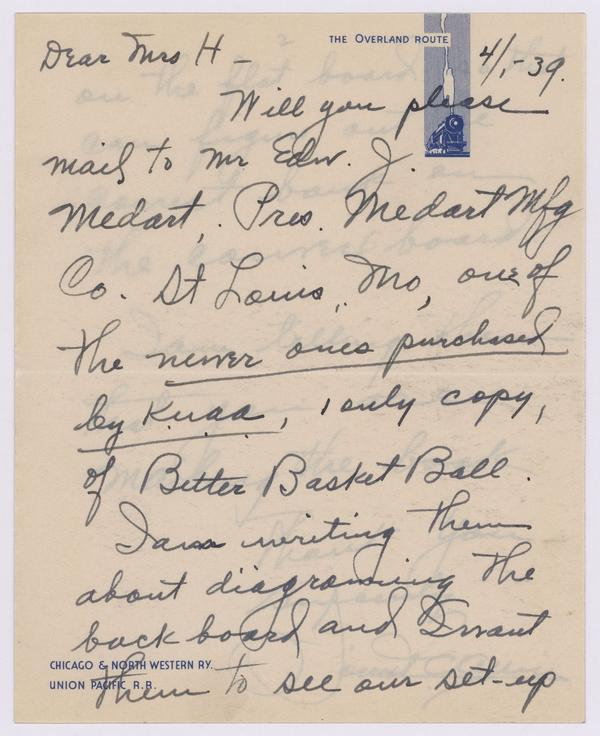 THE OVERLAND ROUTE
Dear Mrs H – 4/1-39.
Will you please
mail to Mr Edw. J.
Medart, Pres. Medart Mfg
Co. St Louis, Mo, one of
the newer ones purchased
by K.u.aa, 1 only copy,
of Better Basket Ball.
I am writing them
about diagraming the
back board and I want
CHICAGO & NORTH WESTERN RY.
UNION PACIFIC R.R.
them to see our set-up